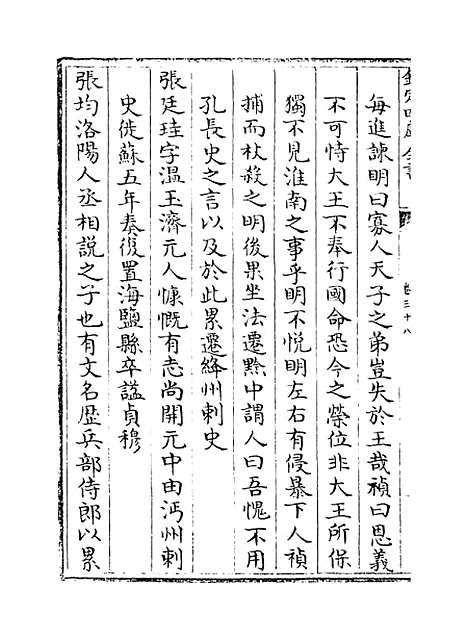 欽定四庫全書
卷三十八
每進諫明曰寡人天子之弟豈失於王哉禎曰恩義
不可恃大王不奉行國命恐今之榮位非大王所保
獨不見淮南之事乎明不悅明左右有侵暴下人禎
捕而杖殺之明後果坐法遷黔中謂人曰吾愧不用
孔長史之言以及於此累遷絳州刺史
張廷珪字溫玉濟元人慷慨有志尚開元中由沔州刺
史徙蘇五年奏復置海鹽縣卒諡貞穆
張均洛陽人丞相說之子也有文名歴兵部侍郎以累